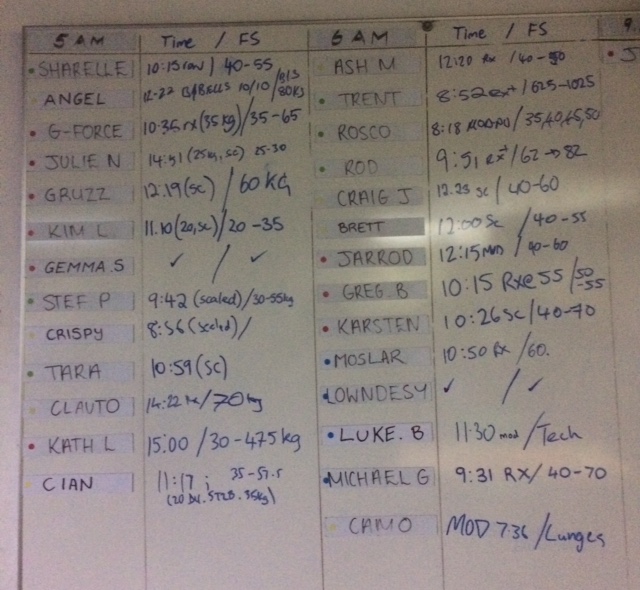 5 AM Time / FS
SHARELLE 10:15 / 40-55
ANGEL 12-22 10/10 /
G-FORCE 10:35 rx (35kg) / 35-65
JULIE N 14:51 (25kg, sc) 25-30
GRUZZ 12.19 (sc) / 60 KG
KIM L 11.10 (20, sc) / 20 -35
GEMMA.S ✓ / ✓
STEF. P 9:42 (scaled) / 30-55kg
CRISPY 8:56 (scaled) /
TARA 10:59 (SC)
CLAUTO 14:22 / 70 kg
KATH L 15.00 / 30-47.5 kg
CIAN 11:17 ; 35-57.5
(20 35kg)
6 AM Time / FS
ASH M 12:20 Rx / 40-50
TRENT 8:52 / 625-1025
ROSCO 8:18 / 35,40,45,50
ROD 9:51 RX+ / 62 → 82
CRAIG J 12.23 sc / 40-60
BRETT 12:00 Sc / 40-55
JARROD 12:15 MOD / 40-60
GREG. B 10:15 Rx@55 / 50-55
KARSTEN 10:26 SC / 40-70
MOSLAR 10:50 RX / 60.
LOWNDESY ✓ / ✓
LUKE. B 11:30 mod / Tech
MICHAEL G 9:31 RX / 40-70
CAMO MOD 7:36 / Lunges
9.
J